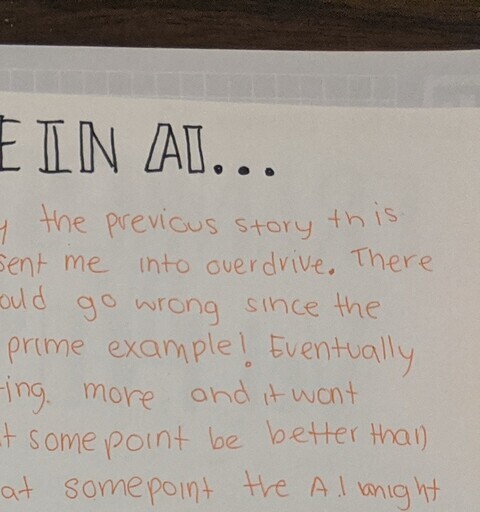 E IN AI...
y the previous story this
sent me into overdrive. There
ould go wrong since the
prime example! Eventually
ing. more and it wont
t somepoint be better than
at somepoint the A.I might